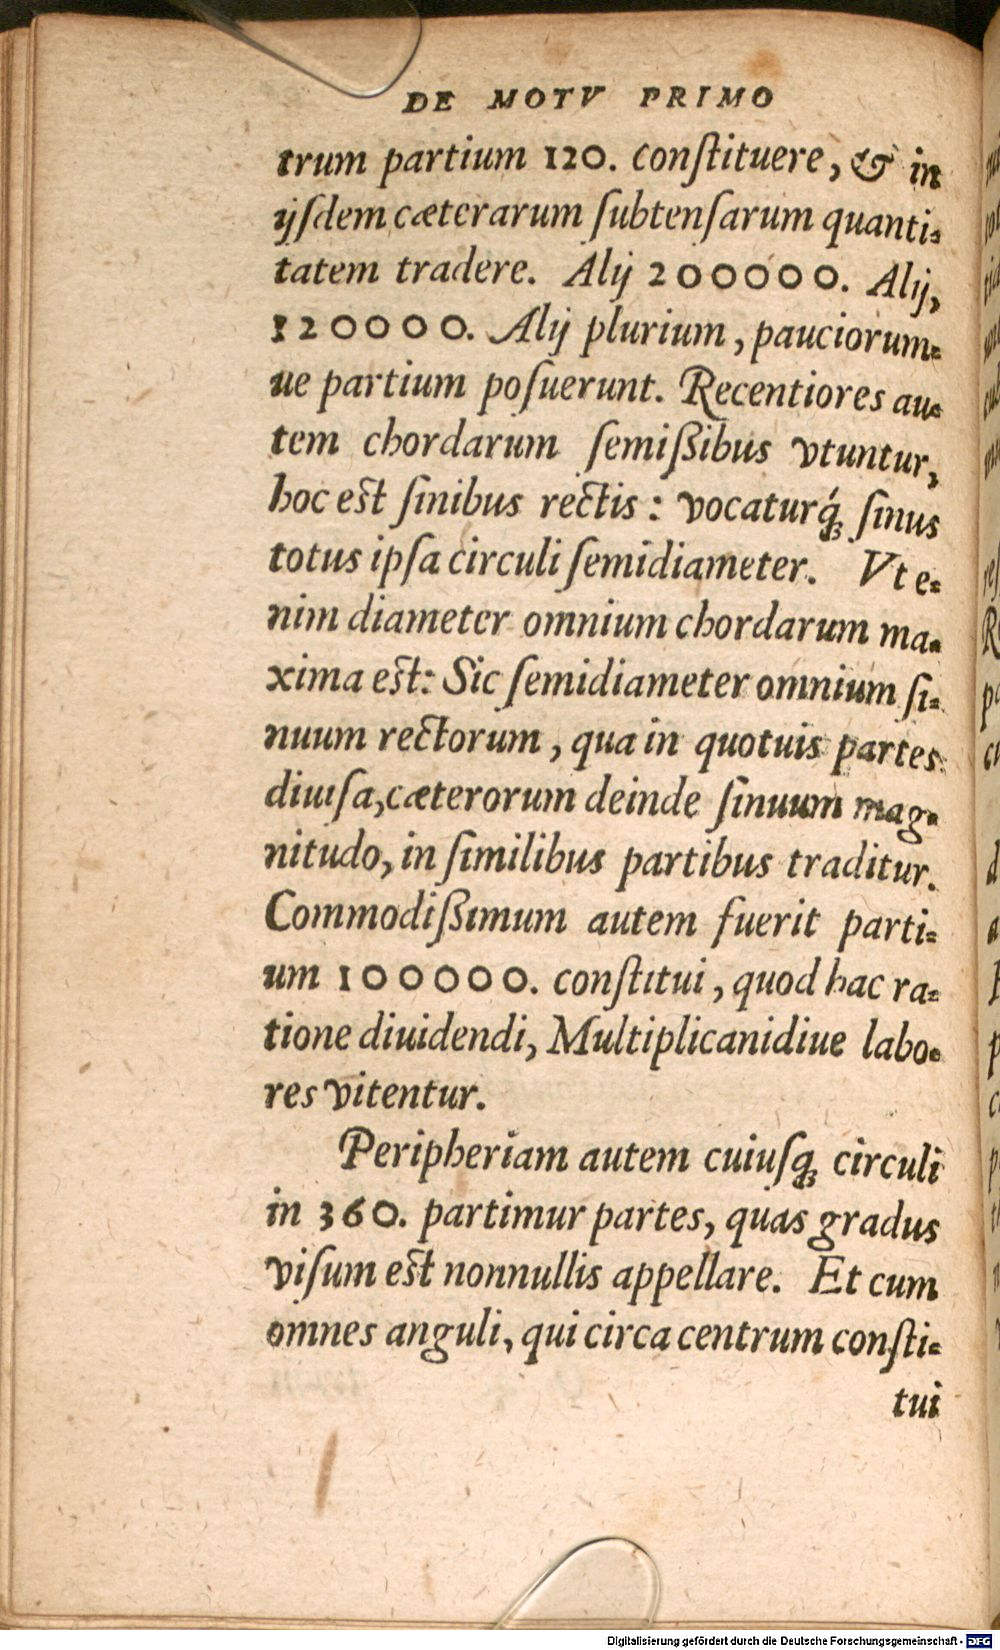 DE MOTV PRIMO
trum partium 120. conſtituere, & in
ijſdem cæterarum ſubtenſarum quanti-
tatem tradere. Alij 200000. Alij,
120000. Alij plurium, pauciorum-
ue partium poſuerunt. Recentiores au-
tem chordarum ſemißibus vtuntur,
hoc est ſinibus rectis: vocaturq́ꝫ ſinus
totus ipſa circuli ſemidiameter. Vt e-
nim diameter omnium chordarum ma-
xima est: Sic ſemidiameter omnium ſi-
nuum rectorum, qua in quotuis partes
diuiſa, cæterorum deinde ſinuum mag-
nitudo, in ſimilibus partibus traditur.
Commodißimum autem fuerit parti-
um 100000. conſtitui, quod hac ra-
tione diuidendi, Multiplicanidiue labo-
res vitentur.
Peripheriam autem cuiuſqꝫ circuli
in 360. partimur partes, quas gradus
viſum est nonnullis appellare. Et cum
omnes anguli, qui circa centrum conſti-
tui
Digitalisierung gefördert durch die Deutsche Forschungsgemeinschaft - DFG